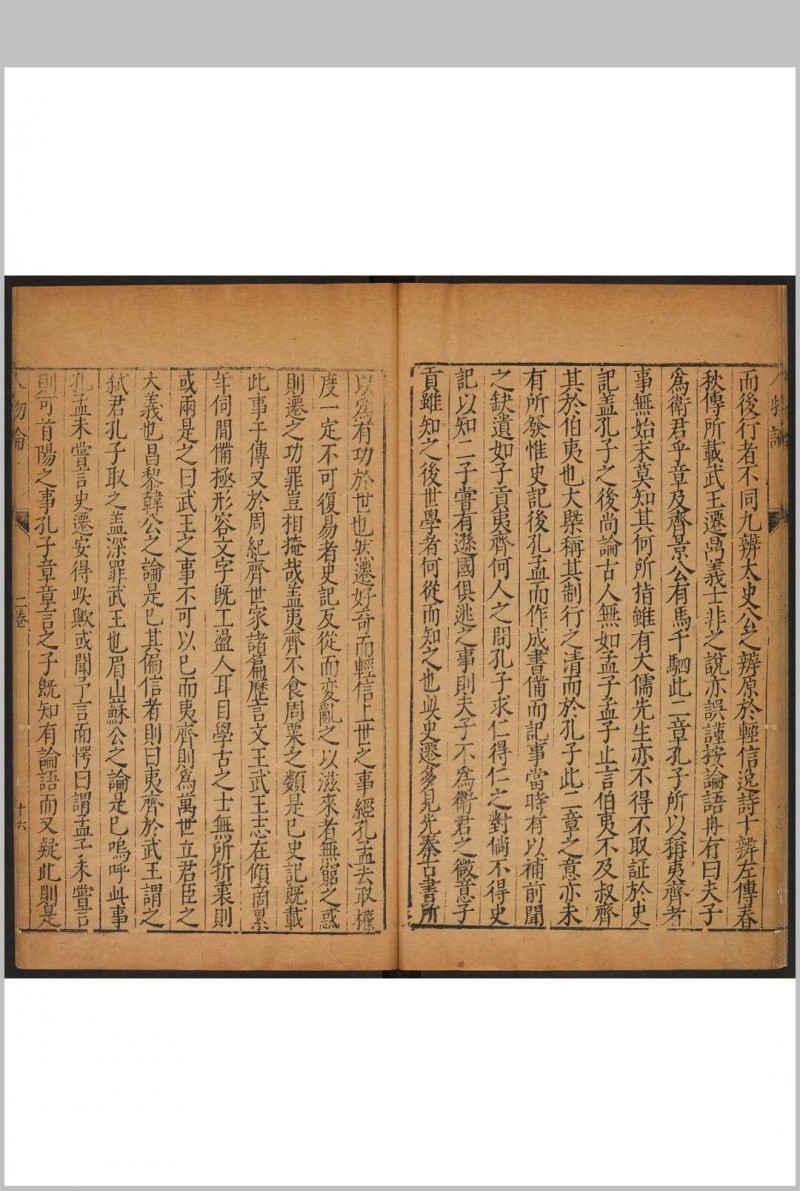 而後行者不同九辨太史公之辨原於輕信逸詩十辨左傳春
秋傳所載武王遷鼎義士非之說亦誤謹按論語冉有曰夫子
為衛君乎章及齊景公有馬千駟此二章孔子所以稱夷齊者
事無始末莫知其何所指雖有大儒先生亦不得不取証於史
記蓋孔子之後尚論古人無如孟子孟子止言伯夷不及叔齊
其於伯夷也大槩稱其制行之清而於孔子此二章之意亦未
有所發惟史記後孔孟而作成書備而記事當時有以補前聞
之缺遺如子貢夷齊何人之問孔子求仁得仁之對倘不得史
記以知二子嘗有遜國俱逃之事則夫子不為衛君之微意子
貢雖知之後世學者何從而知之也此史遷多見先秦古書所
以為有功於世也然遷好奇而輕信上世之事經孔孟去取權
度一定不可復易者史記反從而変亂之以滋來者無窮之惑
則遷之功罪豈相掩哉蓋夷齊不食周粟之類是已史記既載
此事于傳又於周紀齊世家諸篇歷言文王武王志在傾商累
年伺間備極形容文字既工盪人耳目學古之士無所折衷則
或兩是之曰武王之事不可以已而夷齊則為萬世立君臣之
大義也昌黎韓公之論是已其偏信者則曰夷齊於武王謂之
弒君孔子取之盖深罪武王也眉山蘇公之論是已嗚呼此事
孔孟未嘗言史遷安得此歟或聞予言而愕曰謂孟子未嘗言
則可首陽之事孔子章章言之子既知有論語而又疑此則是
人物論
二卷
十六